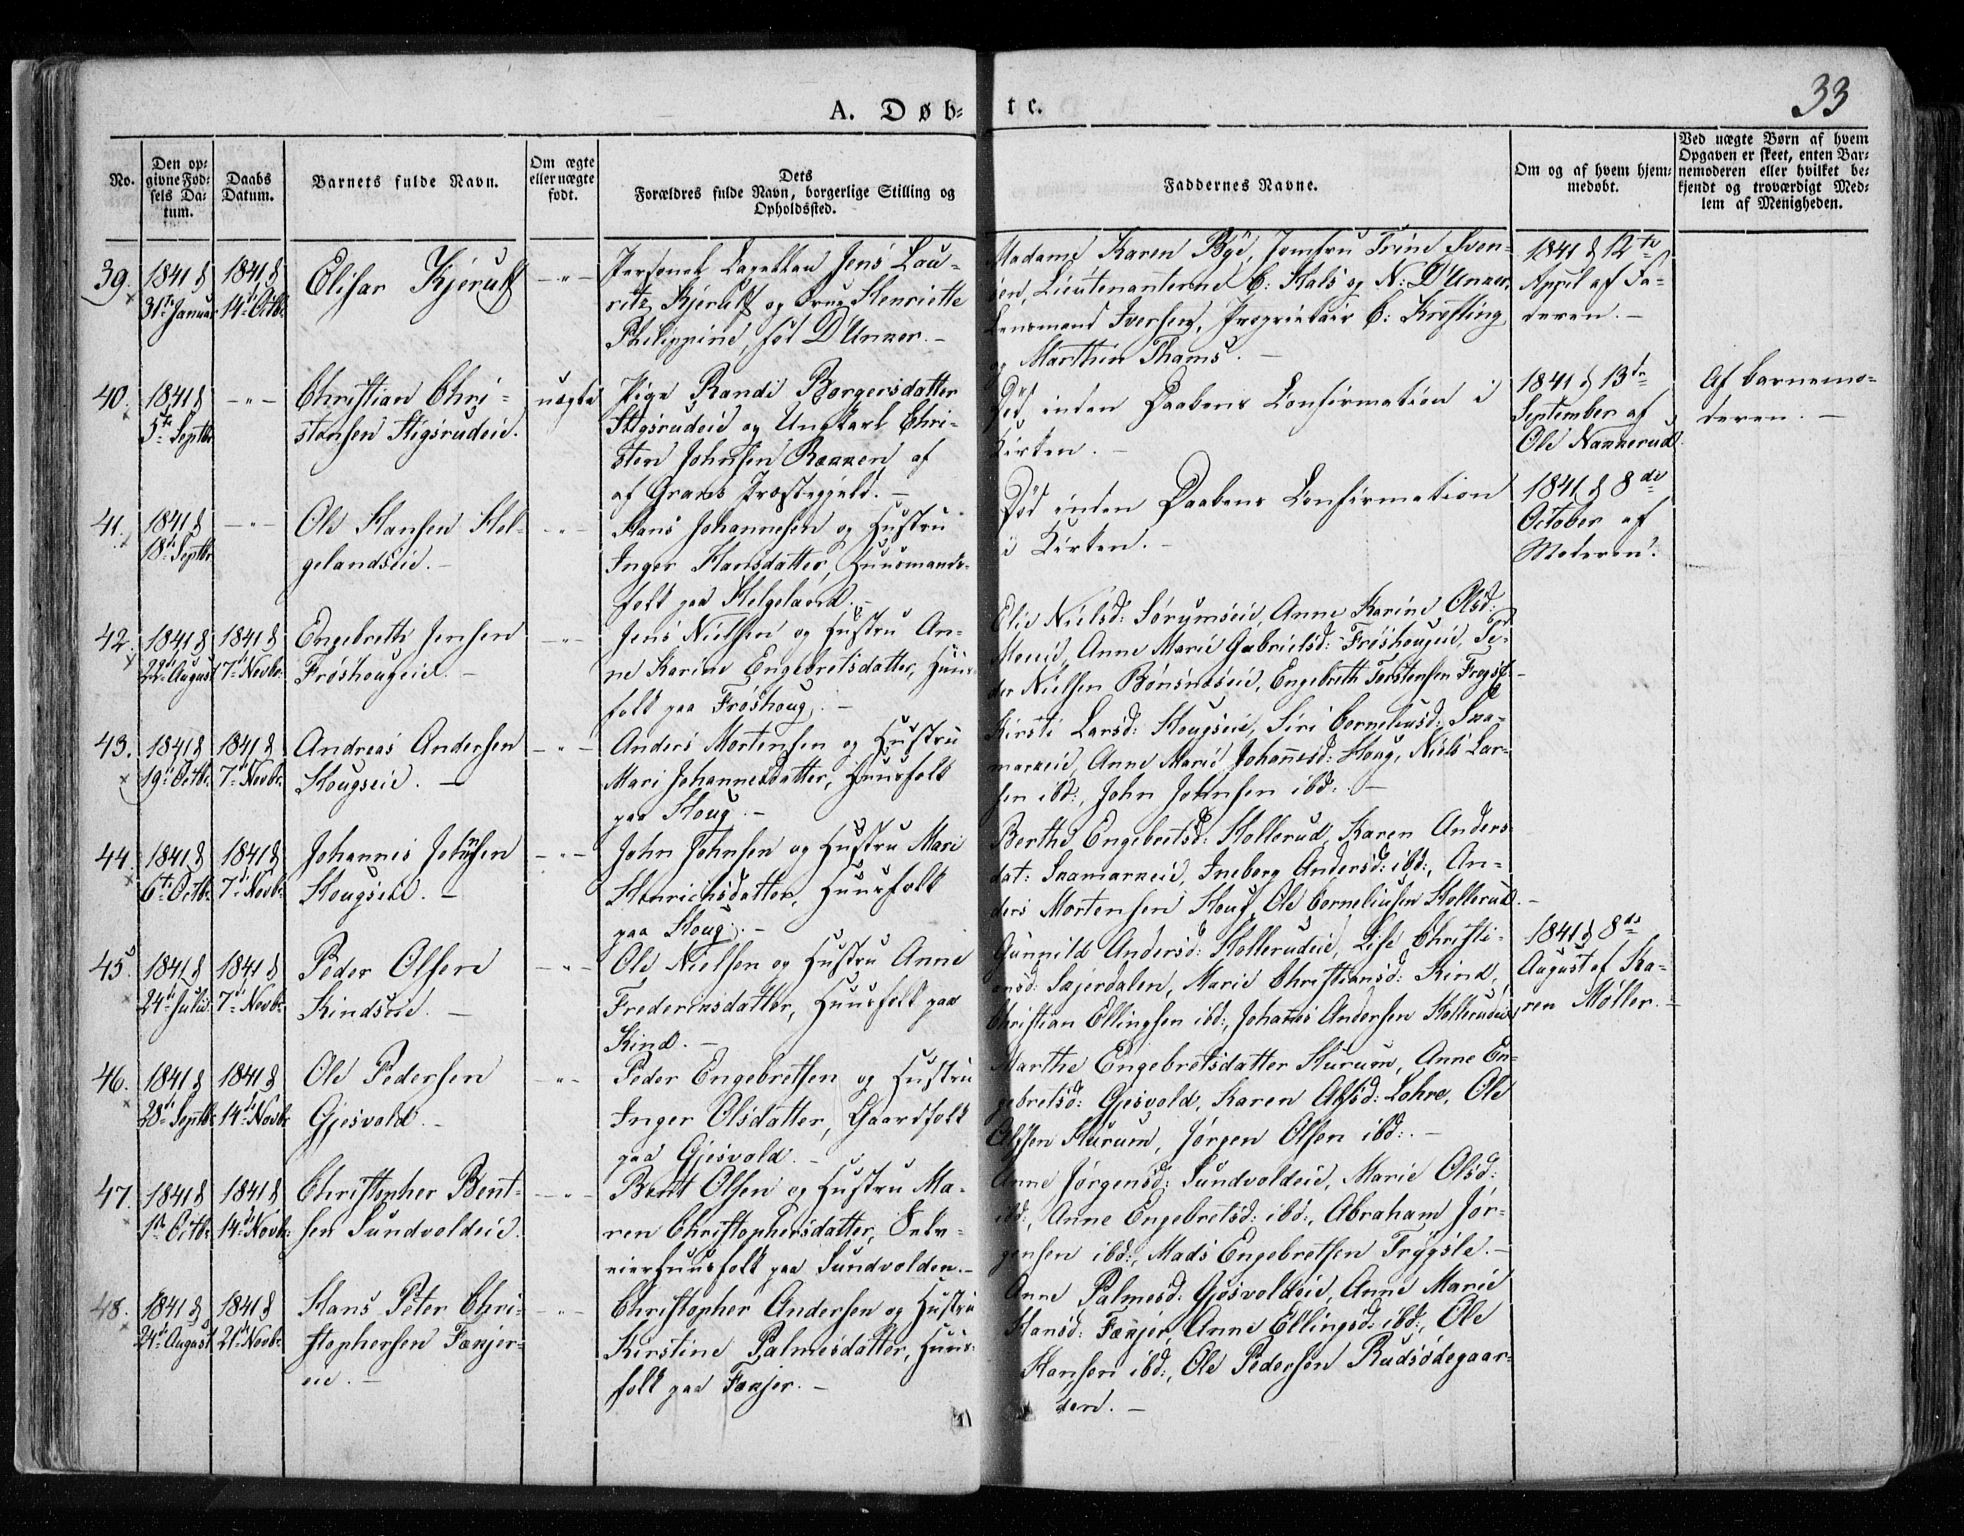 33
A. Døb- te.
No.
Den op-
givne Fød-
sels Da-
tum.
Daabs
Datum.
Barnets fulde Navn.
Om ægte
eller uægte
født.
Dets
Forældres fulde Navn, borgerlige Stilling og
Opholdssted.
Faddernes Navne.
Om og af hvem hjem-
medøbt.
Ved uægte Børn af hvem
Opgaven er skeet, enten Bar-
nemoderen eller hvilket be-
kjendt og troværdigt Med-
lem af Menigheden.
39.
1841 d
31te Januar
1841 d
14de Octb.
Elisar Kjerulf
Personel Capellan Jens Lau-
ritz Kjerulf og Frue Henriette
Philippine, fød D'Unker.-
Madame Karen Bye, Jomfru Trine Sven-
sen, Lieutenanterne C: Hals og N: D'Unker,
Lensmand Iversen, Proprietair C: Krefting
og Marthin Thams.-
1841 d 12te
April af Fa-
deren.-
40.
1841 d
5te Septbr
Christian Chri-
stensen Stigsrudeie.
uægte
Pige Randi Borgersdatter
Stigsrudeie og Ungkarl Chri-
sten Johnsen Rækken af
af Grans Præstegjeld.-
Død inden Daabens Confirmation i
Kirken.-
1841 d 13de
September af
Ole Nakkerud.
Af barnemo-
deren.-
41.
1841 d
18de Septbr
Ole Hansen Hel-
gelandseie.-
Hans Johannesen og Hustru
Inger Hansdatter, Huusmands-
folk paa Helgeland.-
Død inden Daabens Confirmation
i Kirken.-
1841 d 8de
October af
Moderen.
42.
1841 d
22de August
1841 d
7de Novbr.
Engebreth Jensen
Frøshougeie.-
Jens Nielsen og Hustru An-
ne Karine Engebretsdatter, Huus-
folk paa Frøshoug.-
Elie Nielsd: Sørumseie, Anne Karine Olsd:
Moeeie, Anne Marie Gabrielsd: Frøshougeie, Pe-
der Nielsen Bønsnæseie, Engebreth Torstensen
43.
1841 d
19de Octbr.
1841 d
7de Novbr.
Andreas Andersen
Hougseie.-
Anders Mortensen og Hustru
Mari Johannesdatter, Huusfolk
paa Houg.-
Kirsti Larsd: Hougseie, Siri Corneliusd: Sva-
markeie, Anne Marie Johannesd: Houg, Niels Lar-
sen ibd:, John Johnsen ibd:.-
44.
1841 d
6te Octbr.
1841 d
7de Novbr.
Johannes Johnsen
Hougseie.-
John Johnsen og Hustru Mari
Henrichsdatter, Huusfolk
paa Houg.-
Berthe Engebretsd: Hollerud, Karen Anders-
dat: Svamarkeie, Ingeborg Andersd: ibd:, An-
ders Mortensen Houg, Ole Corneliusen Hollerud.-
45.
1841 d
24de Julii
1841 d
7de Novbr.
Peder Olsen
Kindseie.-
Ole Nielsen og Hustru Anne
Frederiksdatter, Huusfolk paa
Kind.-
Gunnild Andersd: Hollerudeie, Lise Christi-
ansd: Sajerdalen, Marie Christiansd: Kind,
Christian Ellingsen ibd:, Johannes Andersen Hollerudeie.
1841 d 8de
August af Ka-
ren Møller.-
46.
1841 d
28de Septbr.
1841 d
14de Novbr
Ole Pedersen
Gjesvold.-
Peder Engebretsen og Hustru
Inger Olsdatter, Gaardfolk
paa Gjesvold.-
Marthe Engebretsdatter Hurum, Anne En-
gebretsd: Gjesvold, Karen Olsd: Lohre, Ole
Olsen Hurum, Jørgen Olsen ibd:.-
47.
1841 d
1ste Octbr.
1841 d
14de Novbr.
Christopher Bent-
sen Sundvoldeie.
Bent Olsen og Hustru Ma-
ren Christophersdatter, Selv-
eierhuusfolk paa Sundvolden.-
Anne Jørgensd: Sundvoldeie, Marie Olsd:
ibd:, Anne Engebretsd: ibd:, Abraham Jør-
gensen ibd:, Mads Engebretsen Trygsle.-
48.
1841 d
24de August
1841 d
21de Novbr.
Hans Peter Chri-
stophersen Fækjer-
eie.-
Christopher Andersen og Hustru
Kirstine Palmesdatter, Huus-
folk paa Fækjer.-
Anne Palmesd: Gjesvoldeie, Anne Marie
Hansd: Fækjer, Anne Ellingsd: ibd:, Ole
Hansen ibd:, Ole Pedersen Rudsødegaar-
den.-